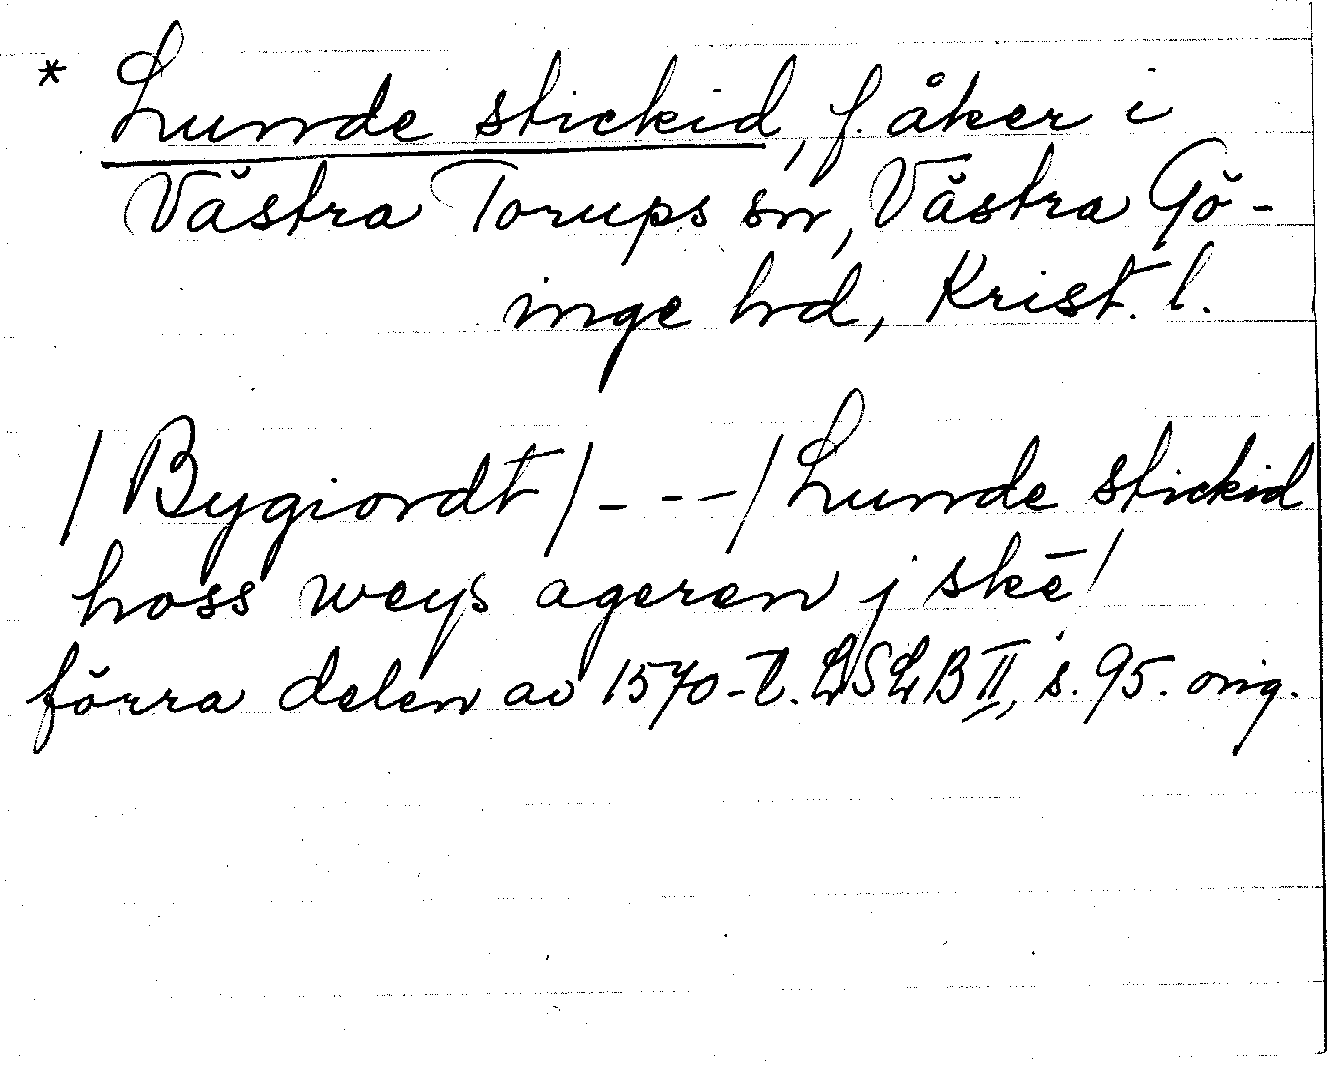 * Lunde stickid, f. åker i
Västra Torups sn, Västra Gö-
inge hd, Krist. l.
/Bygiordt/---/Lunde stickid
hoss weys ageren j skē/
förra delen av 1570-t. LSLB II, s. 95. orig.